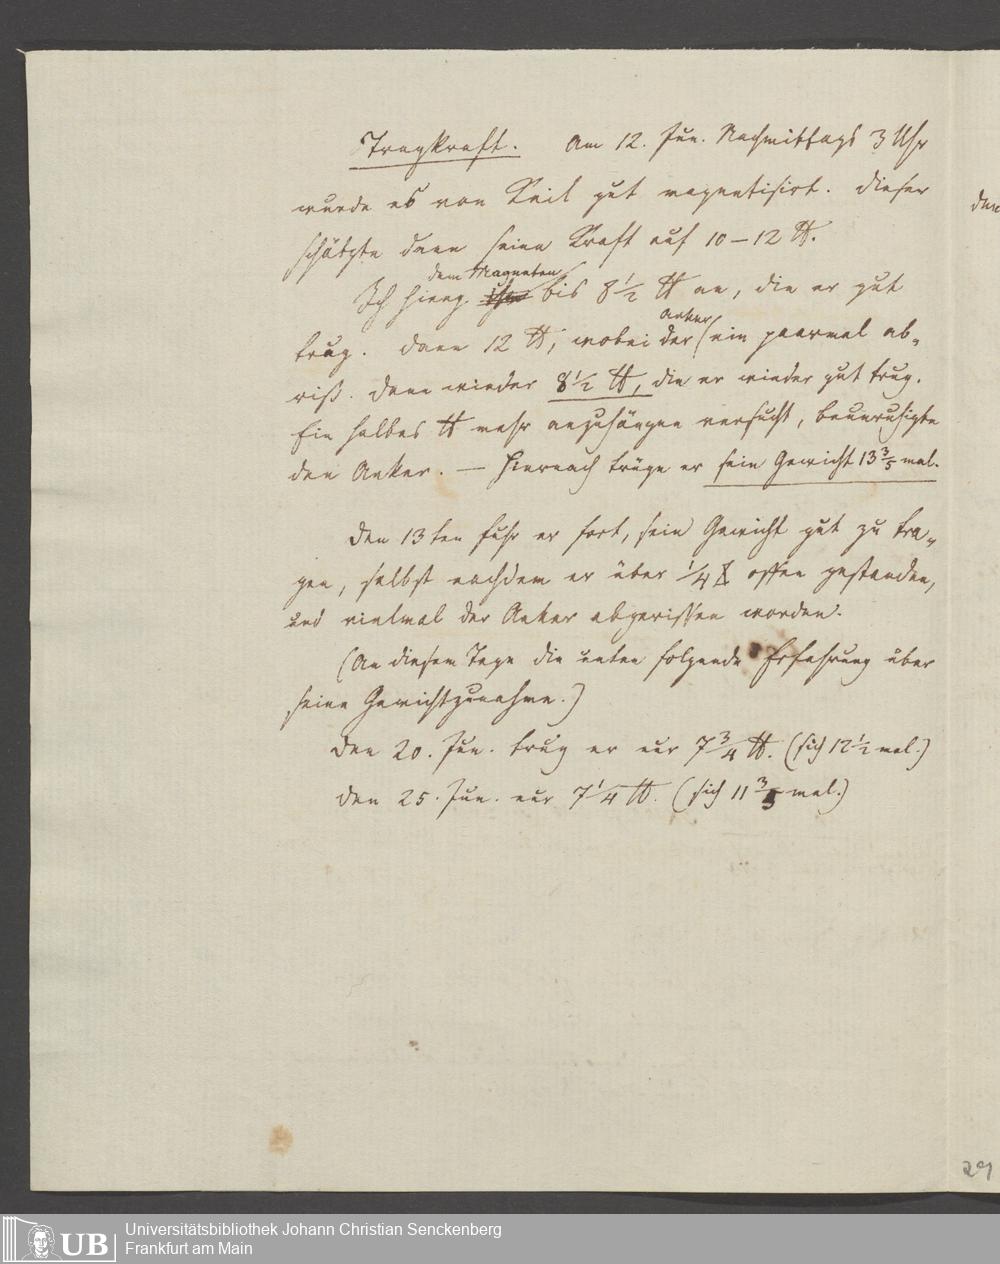 Tragkraft. Am 12. Jun. Nachmittags 3 Uhr
wurde es von Keil gut magnetisirt. Dieser
schätzte dann seine Kraft auf 10–12 ℔.
dem Magneten
Ich hieng ihm bis 8 1/2 ℔ an, die er gut
Anker
trug. Dann 12 ℔, wobei der ein paarmal ab-
riß. Dann wieder 8 1/2 ℔, die er wieder gut trug.
Ein halbes ℔ mehr anzuhängen versucht, beunruhigte
den Anker. — Hiernach trüge er sein Gewicht 13 3/5 mal.
Den 13ten fuhr er fort, sein Gewicht gut zu tra-
gen, selbst nachdem er über 1/4 offen gestanden,
und vielmal der Anker abgerissen worden.
(An diesem Tage die unten folgende Erfahrung über
seine Gewichtzunahme.)
Den 20. Jun. trug er nur 7 3/4 ℔. (sich 12 1/2 mal.)
Den 25. Jun. nur 7 1/4 ℔. (sich 11 3/5 mal.)
29
UB
Universitätsbibliothek Johann Christian Senckenberg
Frankfurt am Main